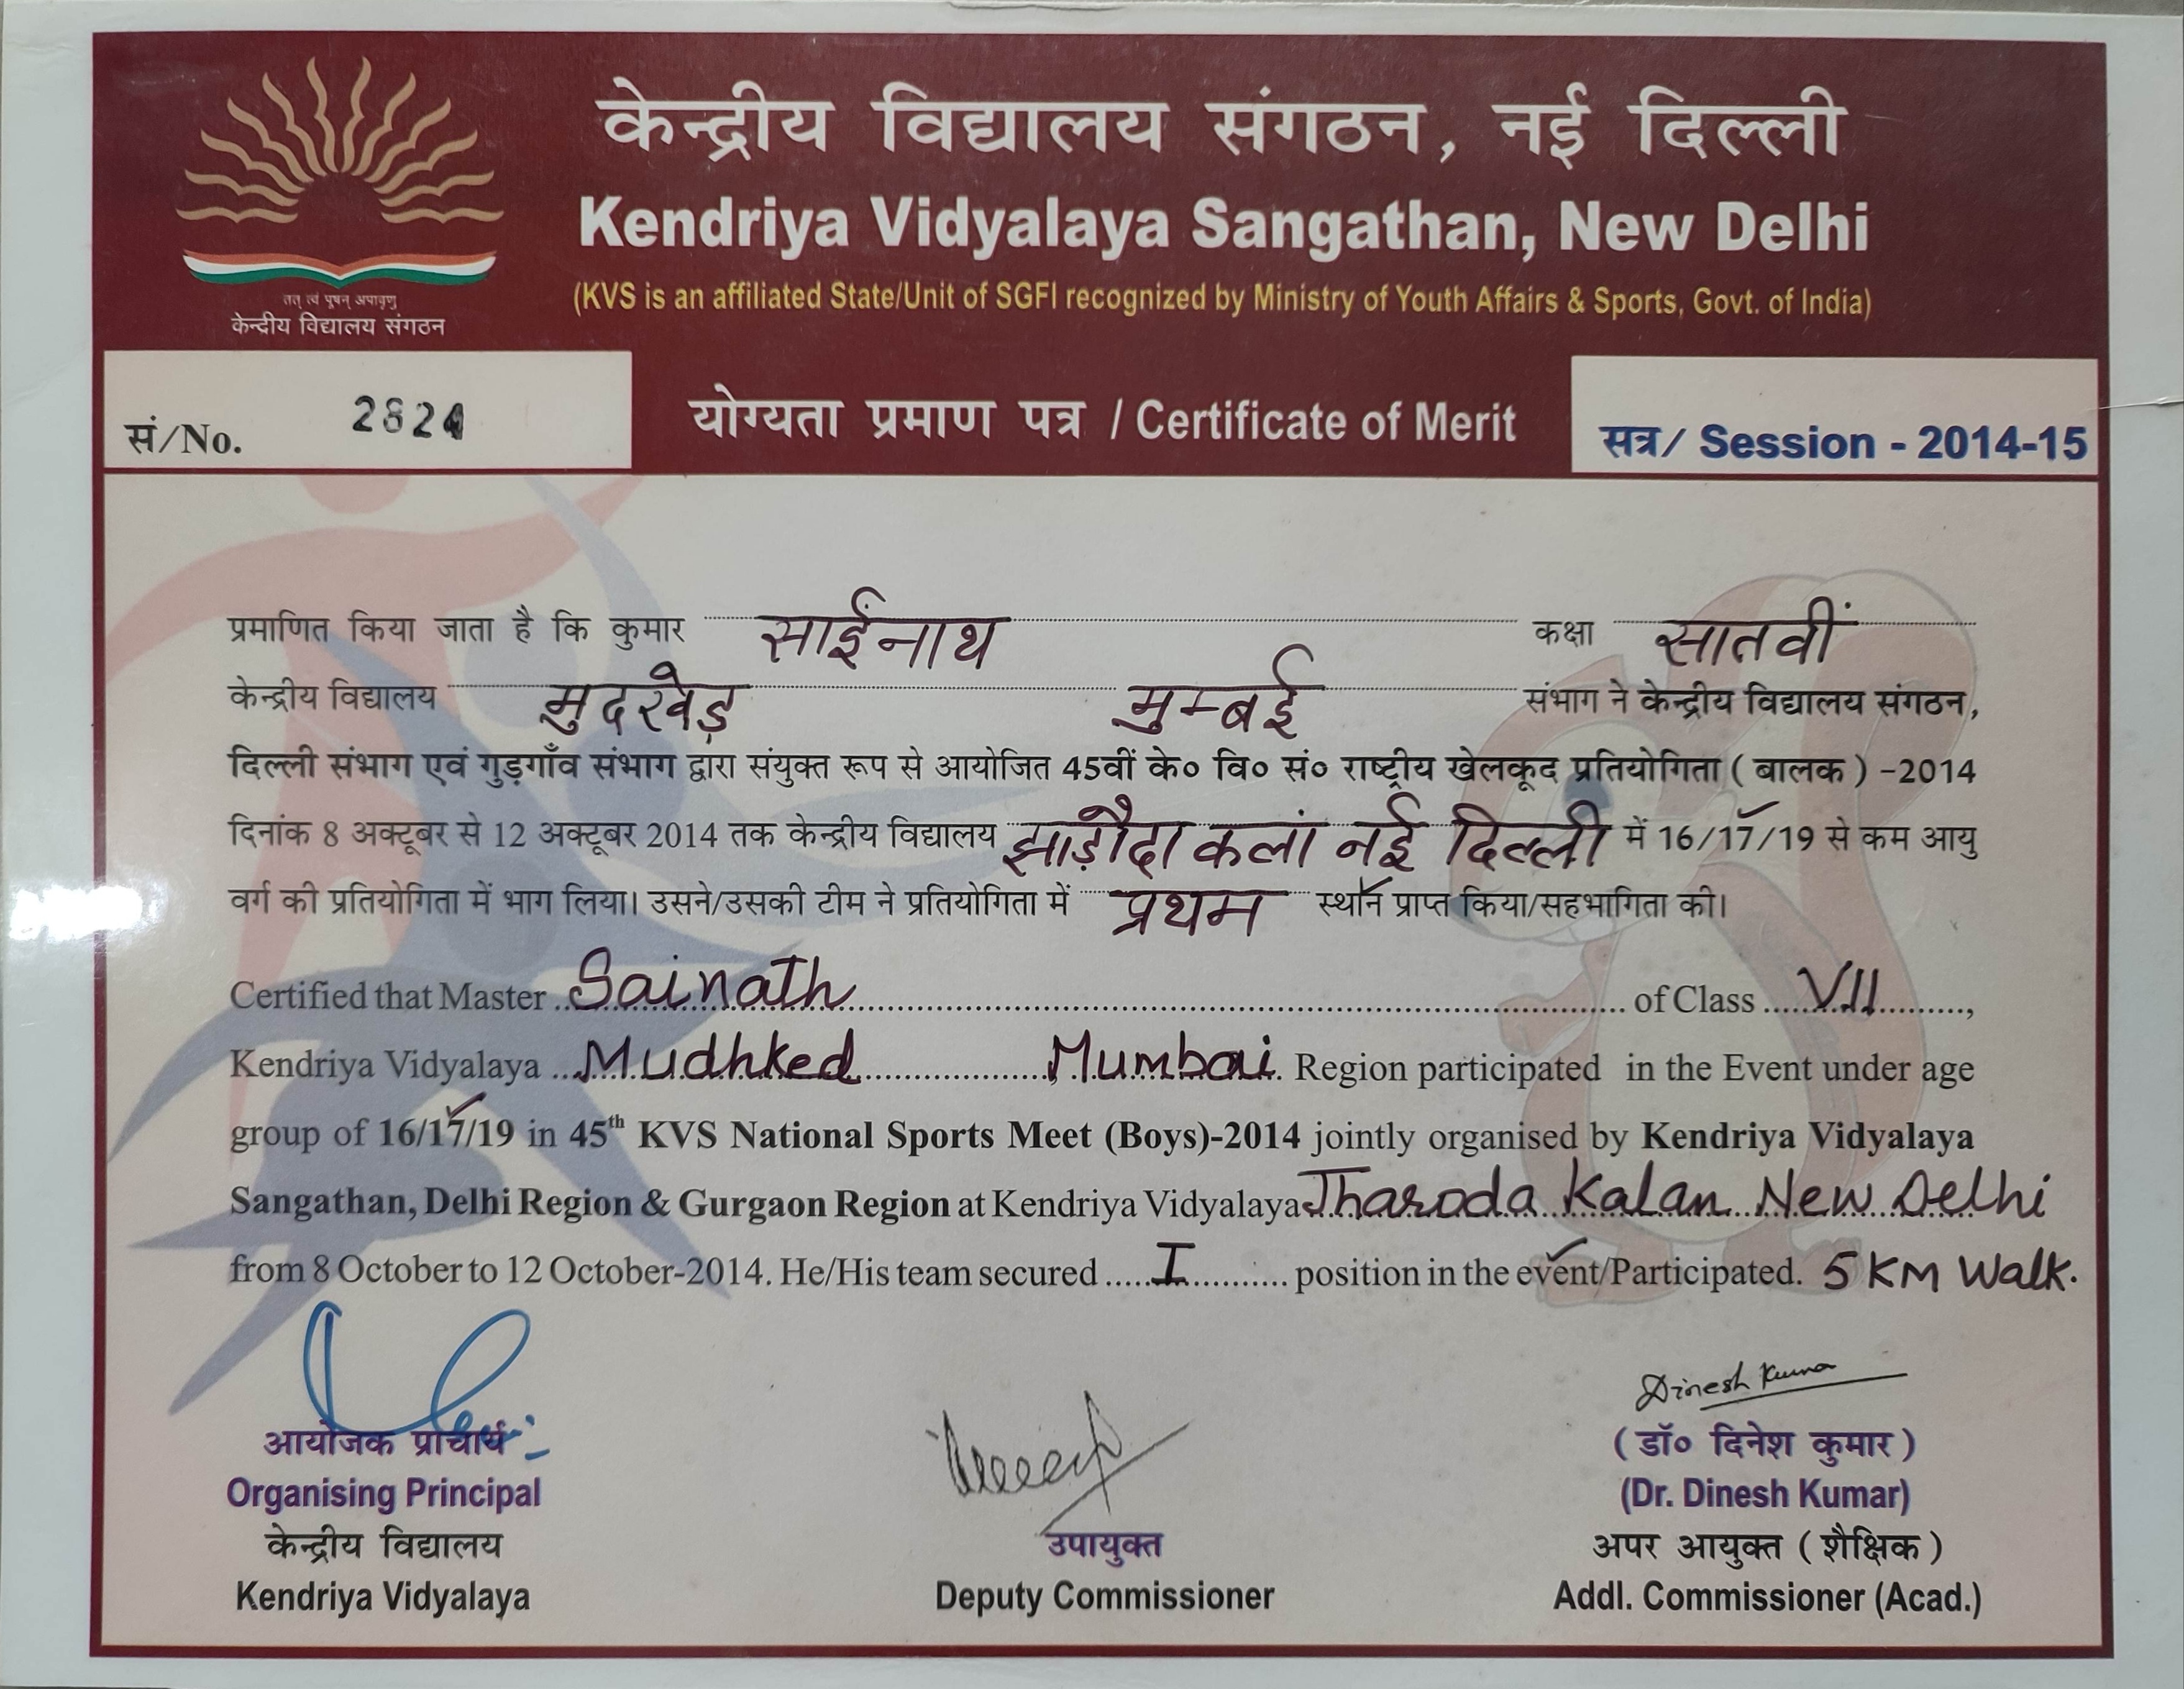 केन्द्रीय विद्यालय संगठन, नई दिल्ली
Kendriya Vidyalaya Sangathan, New Delhi
(KVS is an affiliated State/Unit of SGFI recognized by Ministry of Youth Affairs & Sports, Govt. of India)
तत् त्वं पूषन् अपावृणु
केन्द्रीय विद्यालय संगठन
सं/No. 2824
योग्यता प्रमाण पत्र / Certificate of Merit
सत्र/ Session - 2014-15
प्रमाणित किया जाता है कि कुमार साईनाथ कक्षा सातवीं
केन्द्रीय विद्यालय मुदखेड़ मुम्बई संभाग ने केन्द्रीय विद्यालय संगठन,
दिल्ली संभाग एवं गुड़गाँव संभाग द्वारा संयुक्त रूप से आयोजित 45वीं के० वि० सं० राष्ट्रीय खेलकूद प्रतियोगिता ( बालक ) -2014
दिनांक 8 अक्टूबर से 12 अक्टूबर 2014 तक केन्द्रीय विद्यालय झाड़ौदा कलां नई दिल्ली में 16/17/19 से कम आयु
वर्ग की प्रतियोगिता में भाग लिया। उसने/उसकी टीम ने प्रतियोगिता में प्रथम स्थान प्राप्त किया/सहभागिता की।
Certified that Master Sainath of Class VII,
Kendriya Vidyalaya Mudhked Mumbai Region participated in the Event under age
group of 16/17/19 in 45th KVS National Sports Meet (Boys)-2014 jointly organised by Kendriya Vidyalaya
Sangathan, Delhi Region & Gurgaon Region at Kendriya Vidyalaya Jharoda Kalan New Delhi
from 8 October to 12 October-2014. He/His team secured I position in the event/Participated. 5 KM Walk.
Dinesh Kumar
आयोजक प्राचार्य
Organising Principal
केन्द्रीय विद्यालय
Kendriya Vidyalaya
उपायुक्त
Deputy Commissioner
( डॉ० दिनेश कुमार )
(Dr. Dinesh Kumar)
अपर आयुक्त ( शैक्षिक )
Addl. Commissioner (Acad.)